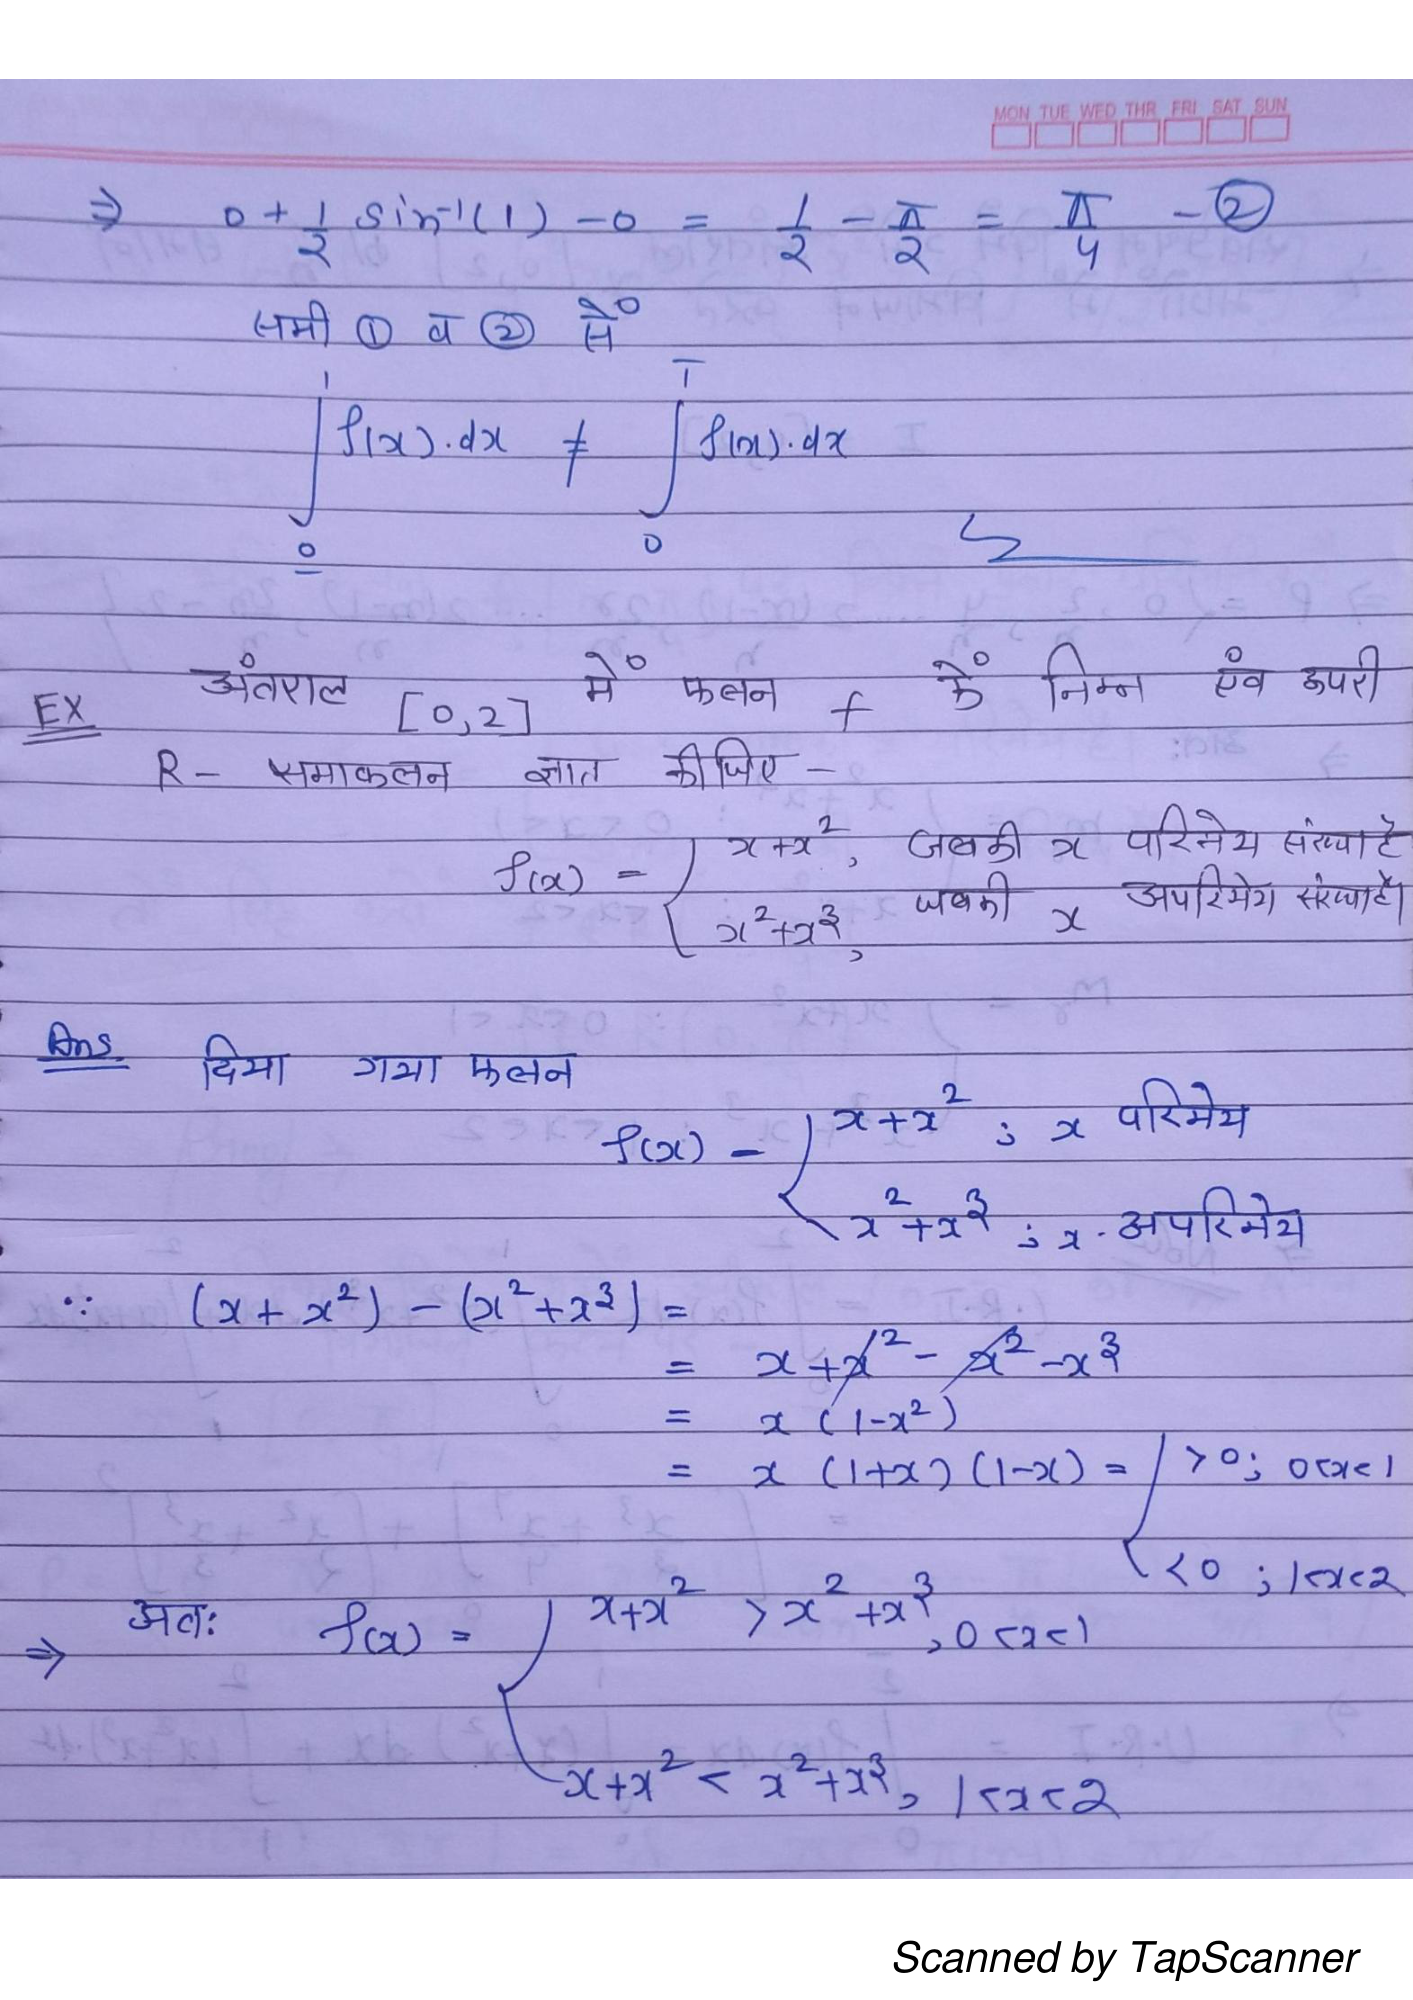 MON TUE WED THR FRI SAT SUN
⇒ 0 + 1/2 sin⁻¹(1) - 0 = 1/2 - π/2 = π/4 - ②
समी ① व ② से
∫_0^1 f(x).dx ≠ ∫_0^1 f(x).dx
EX अंतराल [0,2] में फलन f के निम्न एंव ऊपरी
R - समाकलन ज्ञात कीजिए -
f(x) = { x+x², जबकी x परिमेय संख्या है
x²+x³, जबकी x अपरिमेय संख्या है।
Ans दिया गया फलन
f(x) = { x+x² ; x परिमेय
x²+x³ ; x. अपरिमेय
∵ (x + x²) - (x²+x³) =
= x + x² - x² - x³
= x (1-x²)
= x (1+x) (1-x) = { >0; 0<x<1
<0 ; 1<x<2
⇒ अतः f(x) = { x+x² > x²+x³, 0<x<1
x+x² < x²+x³, 1<x<2
Scanned by TapScanner